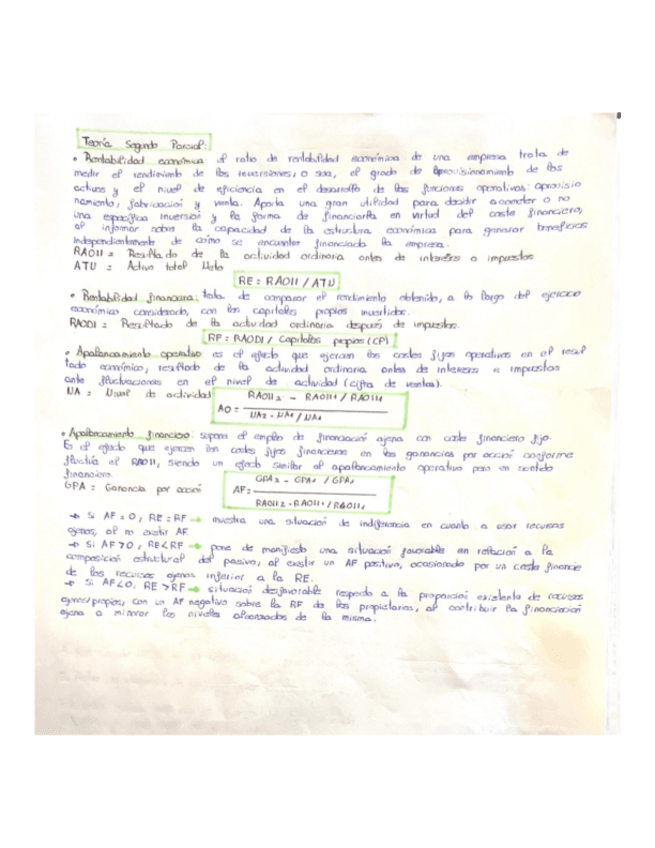 Teoría Segundo Parcial:
• Rentabilidad económica el ratio de rentabilidad económica de una empresa trata de
medir el rendimiento de las inversiones, o sea, el grado de aprovisionamiento de los
activos y el nivel de eficiencia en el desarrollo de las funciones operativas: aprovisio
namiento, fabricación y venta. Aporta una gran utilidad para decidir acometer o no
una específica inversión y la forma de financiarla en virtud del coste financiero,
al informar sobre la capacidad de la estructura económica para generar beneficios
independientemente de cómo se encuentre financiada la empresa.
RAOII = Resultado de la actividad ordinaria antes de intereses o impuestos
ATN = Activo total Neto
RE = RAOII / ATN
• Rentabilidad financiera: trata de comparar el rendimiento obtenido, a lo largo del ejercicio
económico considerado, con los capitales propios invertidos.
RAODI = Resultado de la actividad ordinaria después de impuestos.
RF = RAODI / Capitales propios (CP)
• Apalancamiento operativo: es el efecto que ejercen los costes fijos operativos en el resul
tado económico, resultado de la actividad ordinaria antes de intereses e impuestos
ante fluctuaciones en el nivel de actividad (cifra de ventas).
NA = Nivel de actividad
AO = RAOII2 - RAOII1 / RAOII1
NA2 - NA1 / NA1
• Apalancamiento financiero: supone el empleo de financiación ajena con coste financiero fijo.
Es el efecto que ejercen los costes fijos financieros en las ganancias por acción conforme
fluctúa el RAOII, siendo un efecto similar al apalancamiento operativo pero en sentido
financiero.
GPA = Ganancia por acción
AF = GPA2 - GPA1 / GPA1
RAOII2 - RAOII1 / RAOII1
→ Si AF = 0, RE = RF → muestra una situación de indiferencia en cuanto a usar recursos
ajenos, al no existir AF.
→ Si AF > 0, RE < RF → pone de manifiesto una situación favorable en relación a la
composición estructural del pasivo, al existir un AF positivo, ocasionado por un coste financie
de los recursos ajenos inferior a la RE.
→ Si AF < 0, RE > RF → situación desfavorable respecto a la proporción existente de recursos
ajenos/propios, con un AF negativo sobre la RF de los propietarios, al contribuir la financiación
ajena a minorar los niveles alcanzados de la misma.